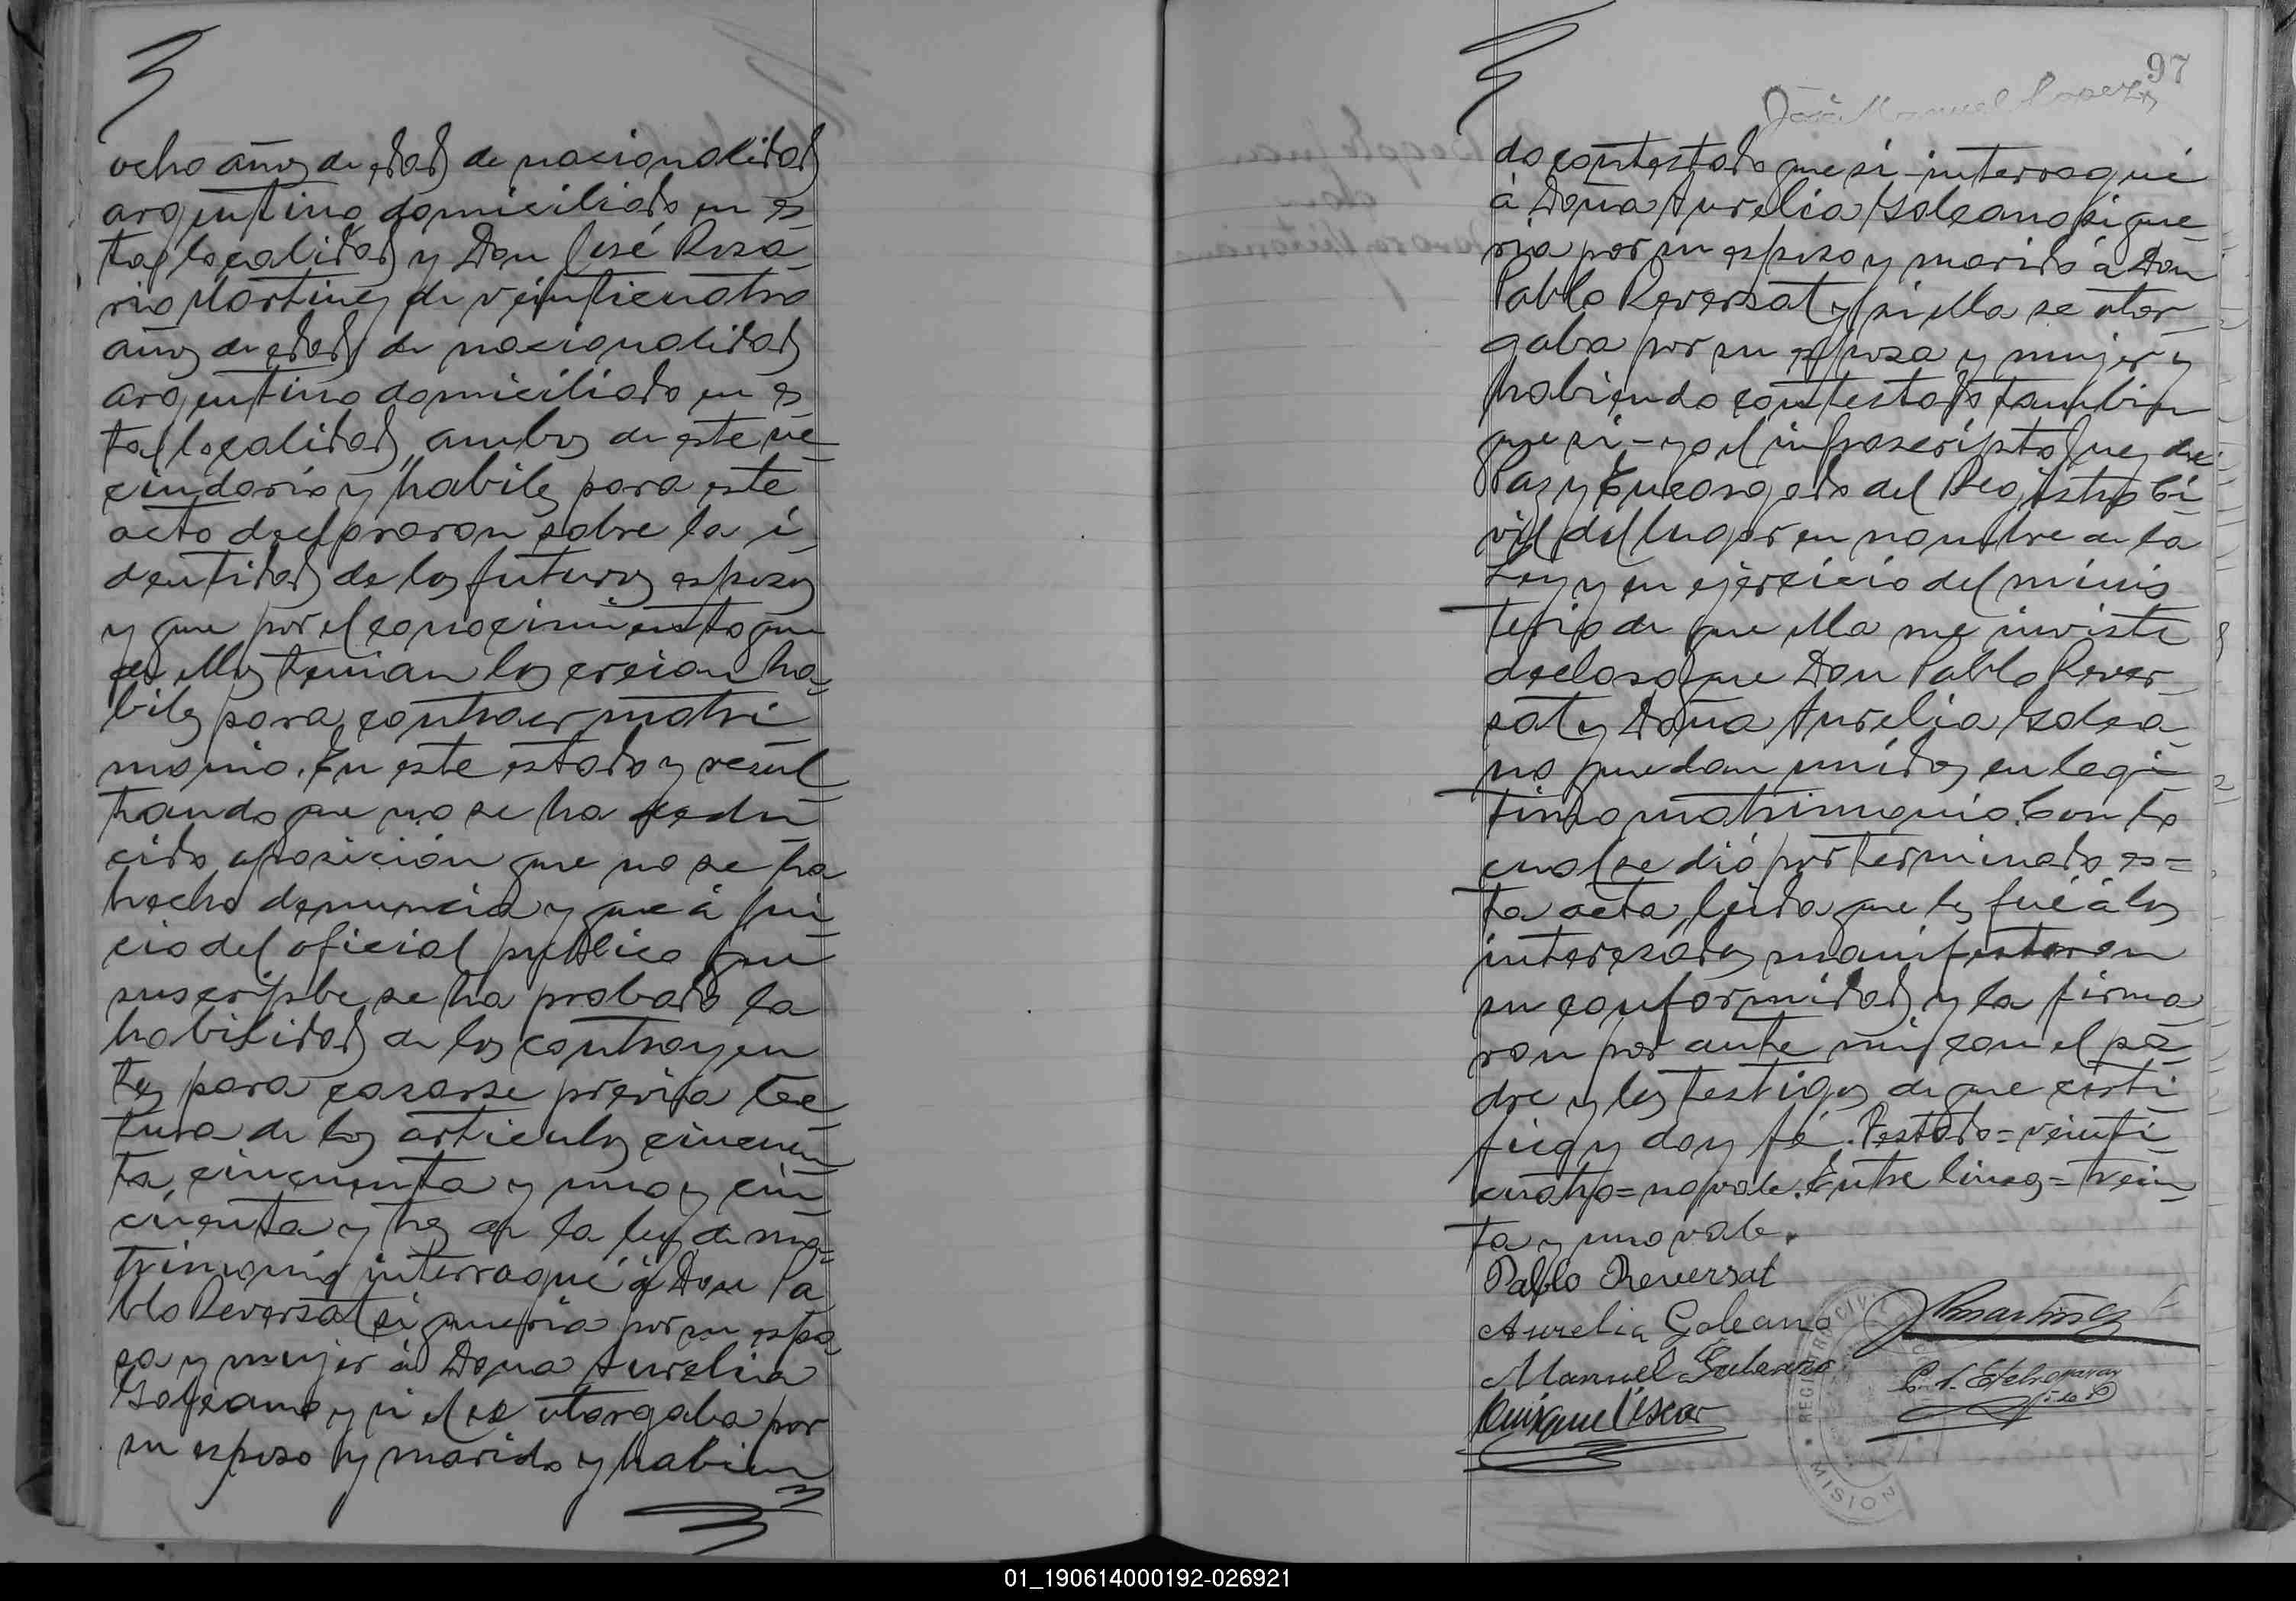 ocho años de edad de nacionalidad
argentino domiciliado en es-
ta localidad y Don José Rosa-
rio Martinez de veinticuatro
años de edad de nacionalidad
argentino domiciliado en es-
ta localidad, ambos de este ve-
cindario y habiles para este
acto declararon sobre la i-
dentidad de los futuros esposos
y que por el conocimiento que
de ellos tenian los creian ha-
biles para contraer matri-
monio. En este estado y resul-
tando que no se ha dedu-
cido oposición que no se ha
hecho denuncia y que á jui-
cio del oficial publico que
suscribe, se ha probado la
habilidad de los contrayen-
tes para casarse previa lec-
tura de los articulos cincuen-
ta, cincuenta y uno y cin-
cuenta y tres de la ley de ma-
trimonio interrogué á Don Pa-
blo Reversat si queria por su espo-
sa y mujer á Doña Aurelia
Galeano y si el se otorgaba por
su esposo y marido y habien-
97
José Manuel Lopez
do contestado que si interrogué
á Doña Aurelia Galeano si que-
ria por su esposo y marido á Don
Pablo Reversat y si ella se otor-
gaba por su esposa y mujer y
habiendo contestado tambien
que si - yo el infrascripto Juez de
Paz y Encargado del Registro Ci-
vil del lugar en nombre de la
Ley y en ejercicio del minis-
terio de que ella me inviste
declaro que Don Pablo Rever-
sat y Doña Aurelia Galea-
no quedan unidos en legi-
timo matrimonio. Con lo
cual se dió por terminado es-
ta acta, leida que les fué á los
interesados manifestaron
su conformidad y la firma-
ron por ante mi con el pa-
dre y los testigos de que certi-
fico y doy fé. Testado = veinti-
cuatro = no vale. Entre lineas = trein-
ta y uno vale.
Pablo Reversat
Aurelia Galeano
JRMartinez
Manuel Galeano
Enrique Viscar
REGISTRO CIVIL
MISION
01_190614000192-026921